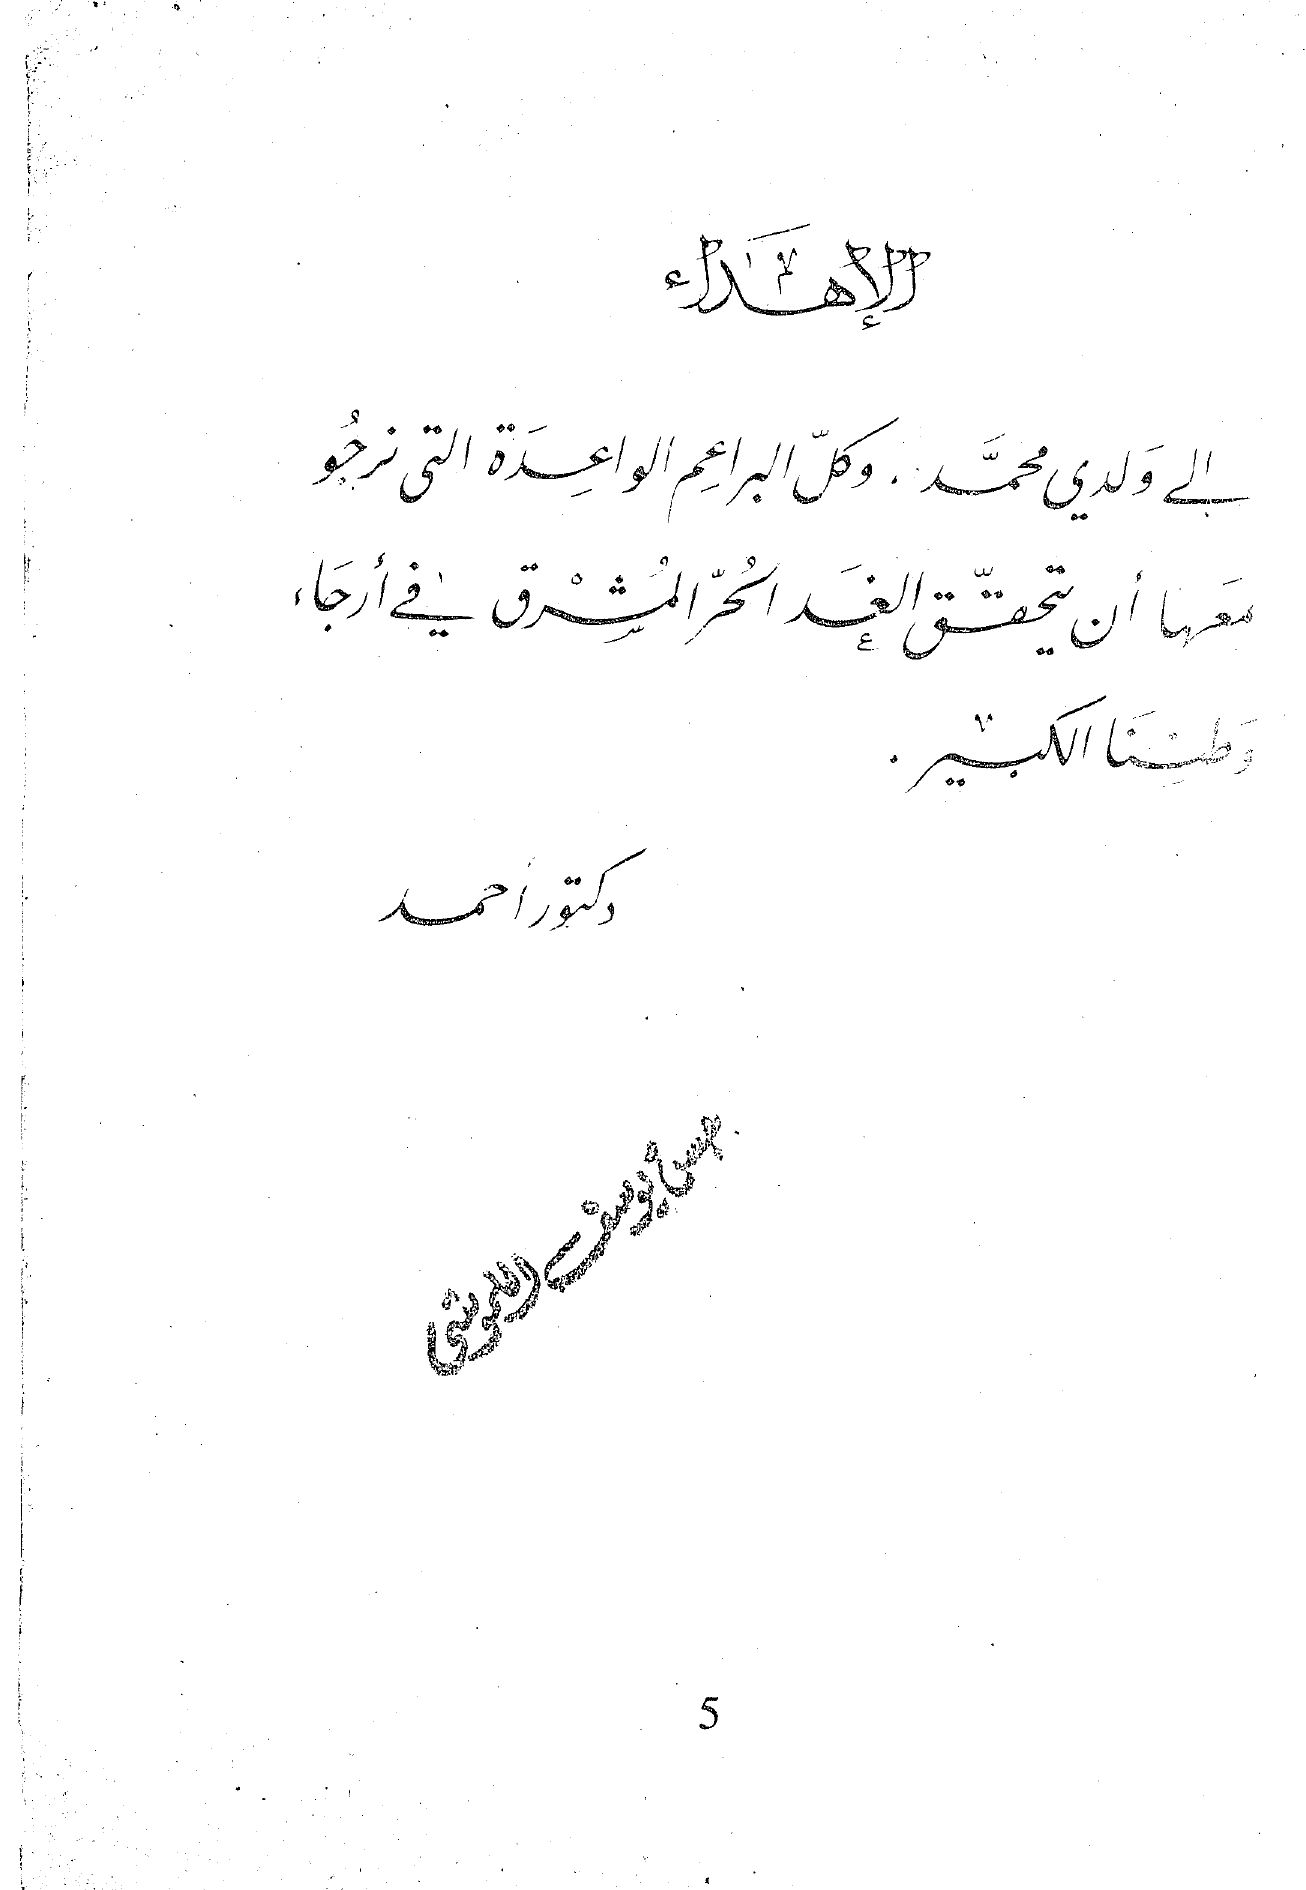 الإهَداء
إلى وَلدي محمَّد . وكلّ البراعِم الواعِدَة التي نرجُو
معَها أن يتحقّق الغَد الحُرّ المُشْرق في أرجَاء
وَطنِنَا الكبير .
دكتور أحمد
يوسف
5